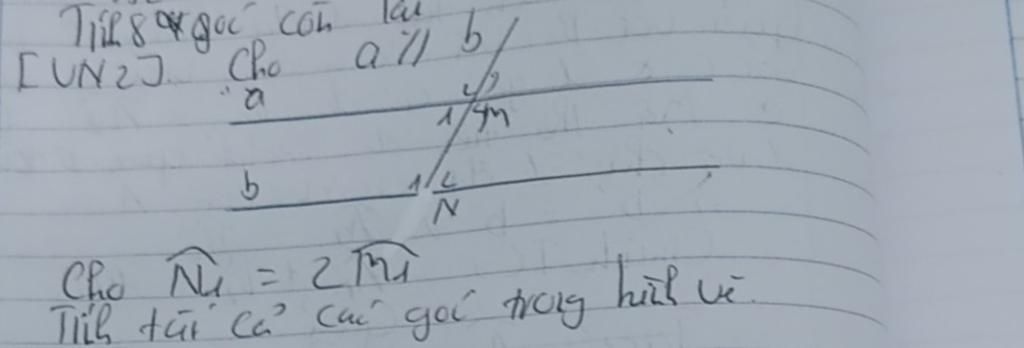 Tính góc còn lại
[VN2]. Cho a // b
a
1 M
b 1 2
N
Cho N1 = 2 M1
Tính tất cả các góc trong hình vẽ.